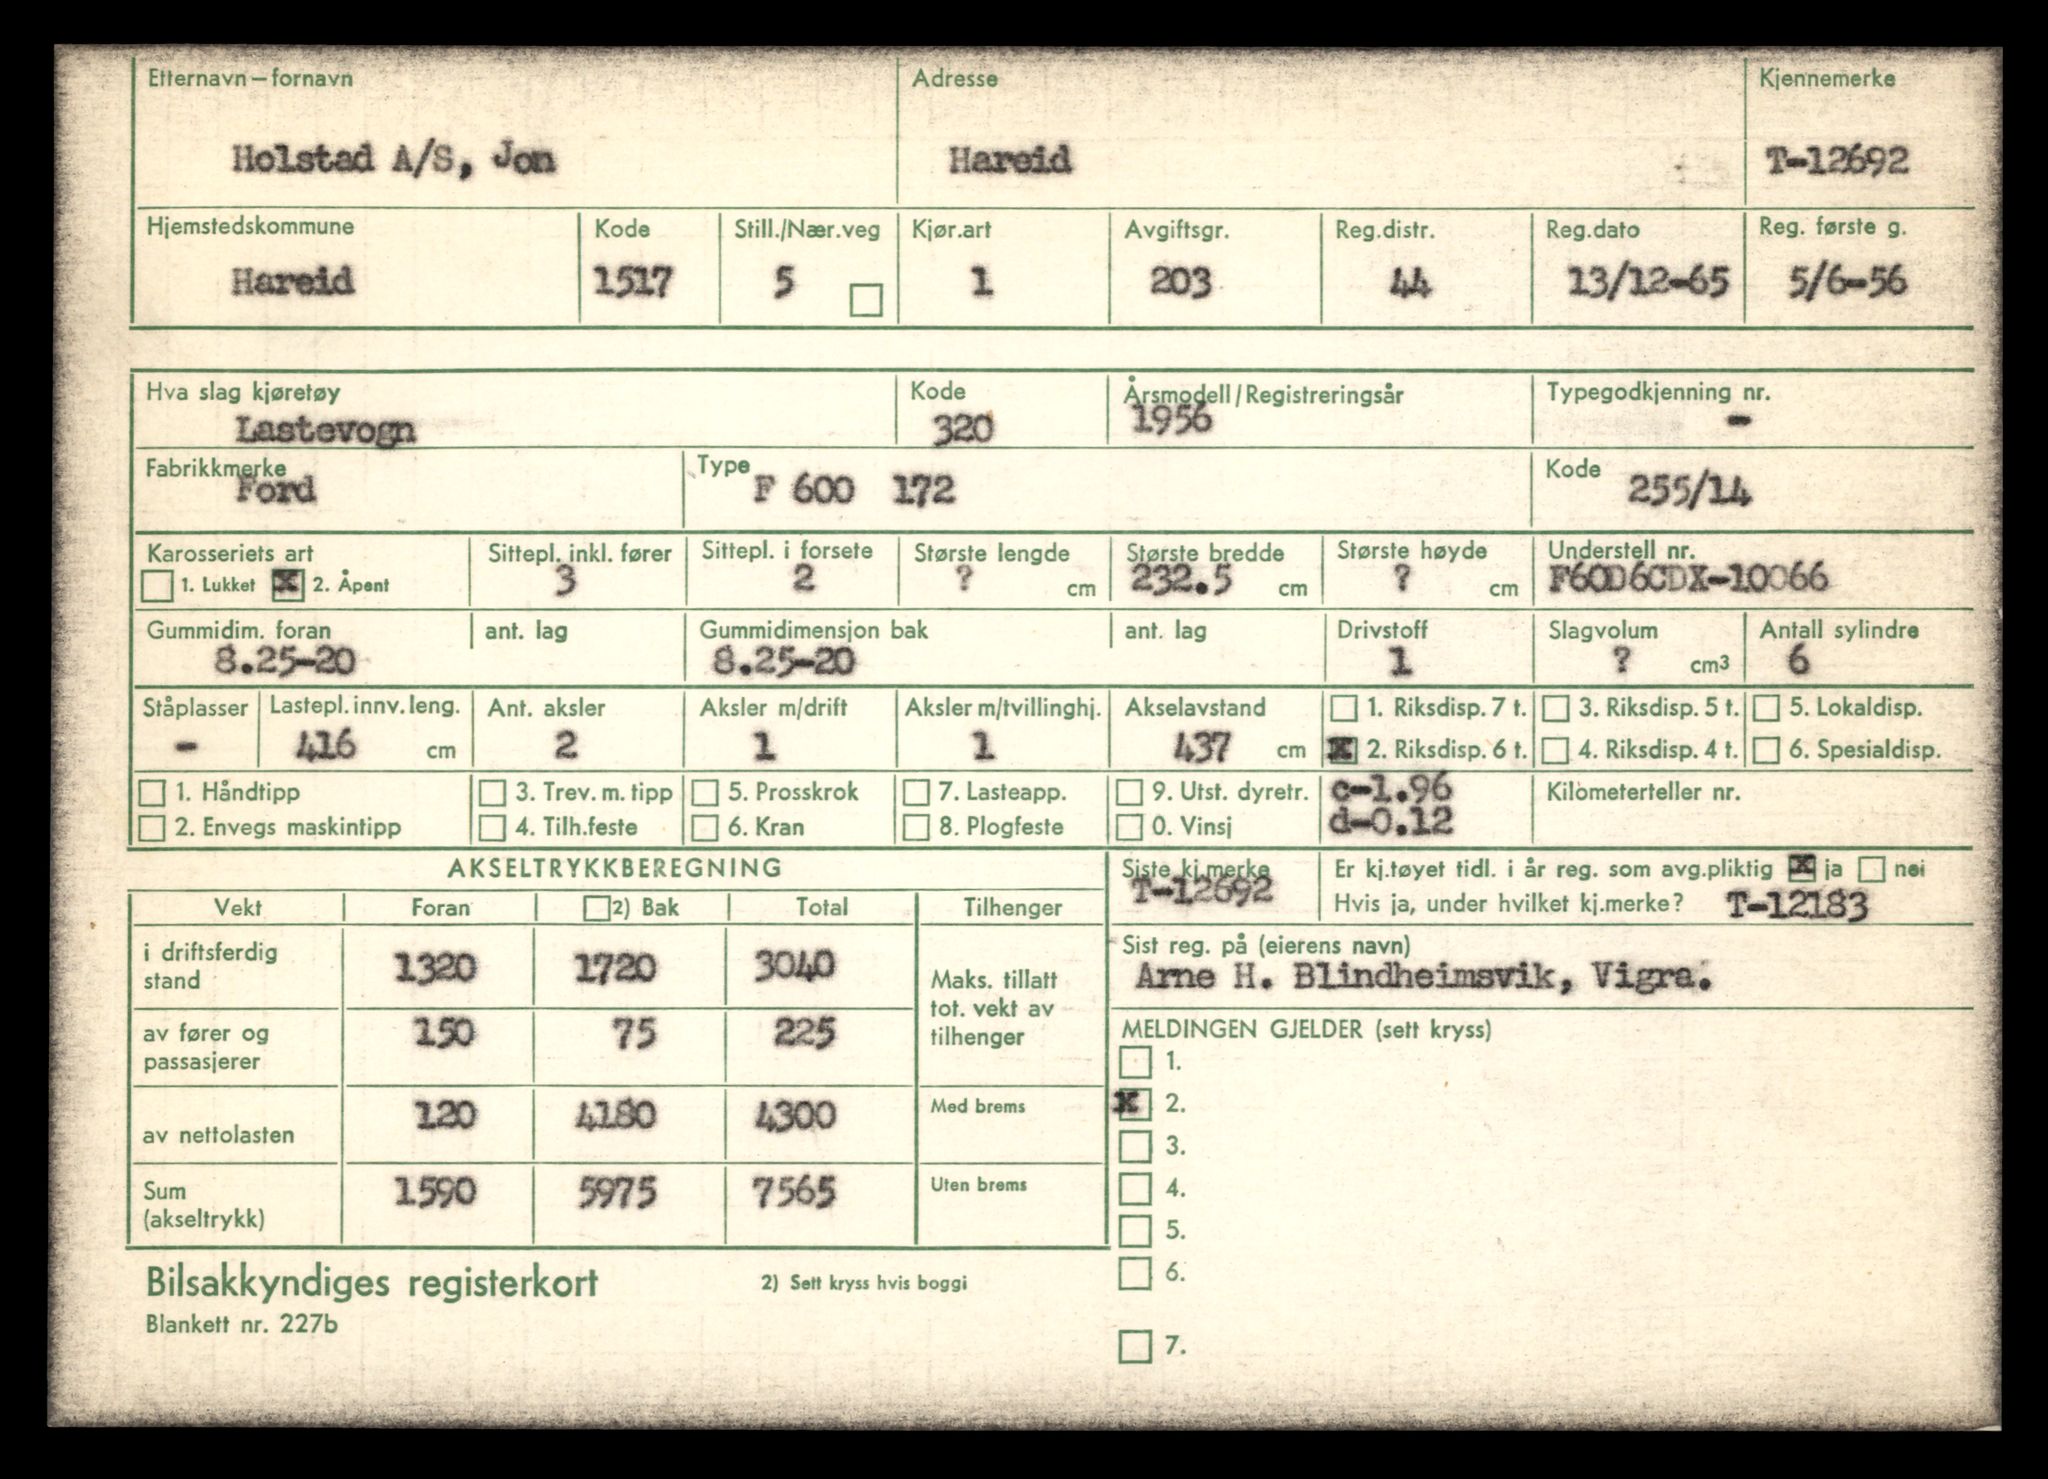 Etternavn – fornavn Adresse Kjennemerke
Holstad A/S, Jon Hareid T-12692
Hjemstedskommune Kode Still./Nær.veg Kjør.art Avgiftsgr. Reg.distr. Reg.dato Reg. første g.
Hareid 1517 5 1 203 44 13/12-65 5/6-56
Hva slag kjøretøy Kode Årsmodell/Registreringsår Typegodkjenning nr.
Lastevogn 320 1956 -
Fabrikkmerke Type Kode
Ford F 600 172 255/14
Karosseriets art Sittepl. inkl. fører Sittepl. i forsete Største lengde Største bredde Største høyde Understell nr.
1. Lukket X 2. Åpent 3 2 ? cm 232.5 cm ? cm F60D6CDX-10066
Gummidim. foran ant. lag Gummidimensjon bak ant. lag Drivstoff Slagvolum Antall sylindre
8.25-20 8.25-20 1 ? cm3 6
Ståplasser Lastepl. innv. leng. Ant. aksler Aksler m/drift Aksler m/tvillinghj. Akselavstand 1. Riksdisp. 7 t. 3. Riksdisp. 5 t. 5. Lokaldisp.
- 416 cm 2 1 1 437 cm X 2. Riksdisp. 6 t. 4. Riksdisp. 4 t. 6. Spesialdisp.
1. Håndtipp 3. Trev. m. tipp 5. Prosskrok 7. Lasteapp. 9. Utst. dyretr. c-1.96 Kilometerteller nr.
2. Envegs maskintipp 4. Tilh.feste 6. Kran 8. Plogfeste 0. Vinsj d-0.12
AKSELTRYKKBEREGNING
Vekt Foran 2) Bak Total Tilhenger
i driftsferdig
stand 1320 1720 3040
Maks. tillatt
tot. vekt av
tilhenger
av fører og
passasjerer 150 75 225
av nettolasten 120 4180 4300 Med brems
Sum
(akseltrykk) 1590 5975 7565 Uten brems
Siste kj.merke Er kj.tøyet tidl. i år reg. som avg.pliktig X ja nei
T-12692 Hvis ja, under hvilket kj.merke? T-12183
Sist reg. på (eierens navn)
Arne H. Blindheimsvik, Vigra.
MELDINGEN GJELDER (sett kryss)
1.
X 2.
3.
4.
5.
6.
7.
Bilsakkyndiges registerkort 2) Sett kryss hvis boggi
Blankett nr. 227b